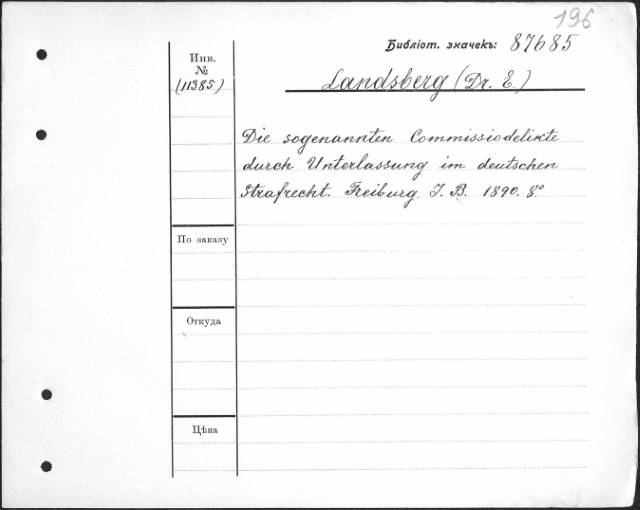 196
Библіот. значекъ: 87685
Инв.
№
(11385)
Landsberg (Dr. E.)
Die sogenannten Commissiodelikte
durch Unterlassung im deutschen
Strafrecht. Freiburg. I. B. 1890. 8°
По заказу
Откуда
Цѣна